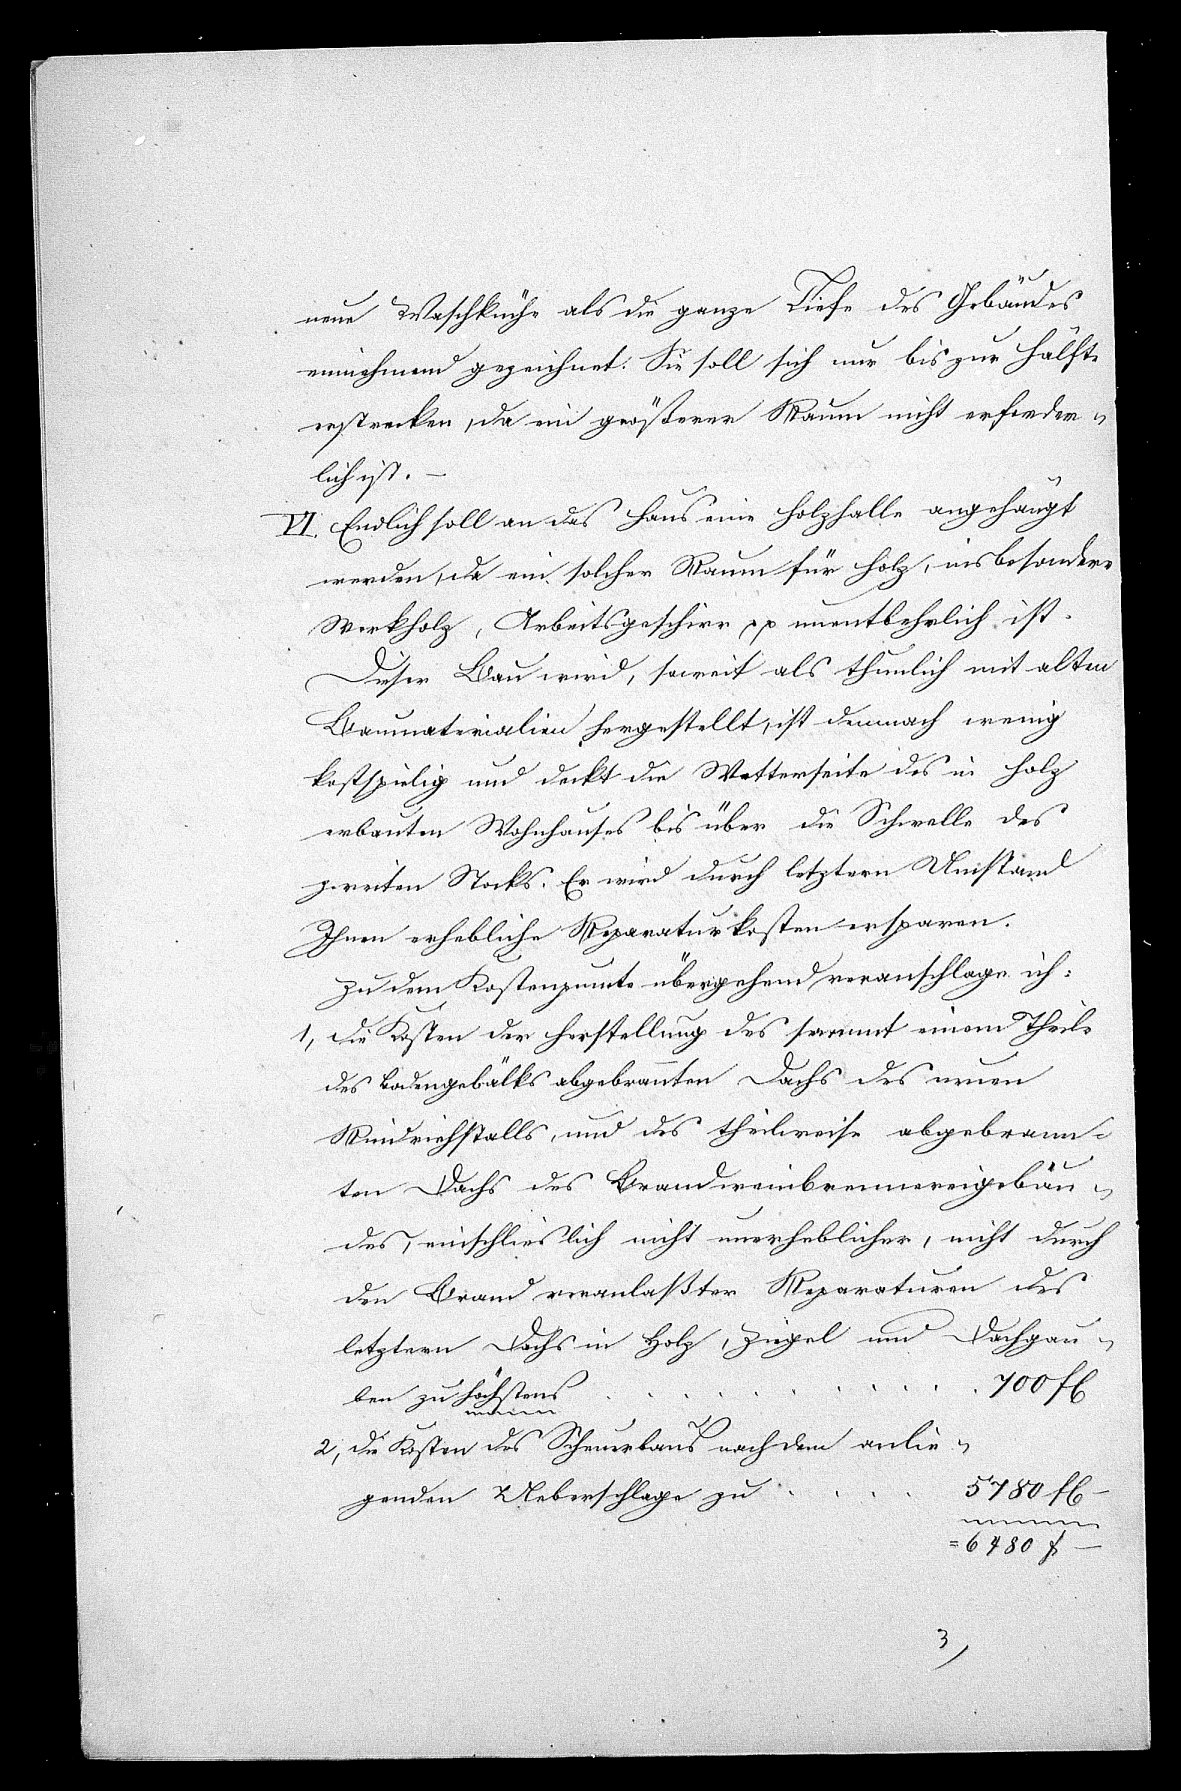 neue Waschküche als die ganze Tiefe des Gebäudes
einnehmend gezeichnet. Sie soll sich nur bis zur Hälfte
erstrecken, da ein größerer Raum nicht erforder-
lich ist. —
VI. Endlich soll an das Haus eine Holzhalle angehängt
werden, da ein solcher Raum für Holz, insbesondere
Werkholz, Arbeitsgeschirr pp unentbehrlich ist.
Dieser Bau wird, soweit als thunlich mit alten
Baumaterialien hergestellt, ist demnach wenig
kostspielig und deckt die Wetterseite des in Holz
erbauten Wohnhauses bis über die Schwelle des
zweiten Stocks. Er wird durch letztern Umstand
Ihnen erhebliche Reparaturkosten ersparen.
Zu dem Kostenpunkte übergehend veranschlage ich:
1, die Kosten der Herstellung des sammt einem Theile
des Bodengebälks abgebrannten Dachs des neuen
Rindviehstalls, und des theilweise abgebrann-
ten Dachs des Brandweinbrennereigebäu-
des, einschlieslich nicht unerheblicher, nicht durch
den Brand veranlaßter Reparaturen des
letztern Dachs in Holz, Ziegel und Dachgau-
ben zu höchstens . . . . . . . . . . . 700 fl
2, die Kosten des Scheuerbaus nach dem anlie-
genden Ueberschlage zu . . . . 5780 fl —
= 6480 f —
3,